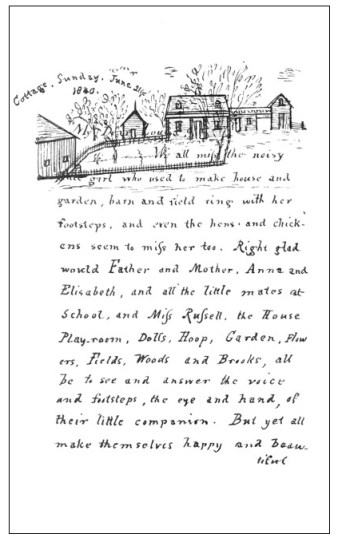 Cottage, Sunday, June 21st
1840.
We all miss the noisy
little girl who used to make house and
garden, barn and field ring with her
footsteps, and even the hens and chick-
ens seem to miss her too. Right glad
would Father and Mother, Anna and
Elisabeth, and all the little mates at
School, and Miss Russell, the House
Play-room, Dolls, Hoop, Garden, Flow
ers, Fields, Woods and Brooks, all
be to see and answer the voice
and footsteps, the eye and hand, of
their little companion. But yet all
make themselves happy and beau-
tiful